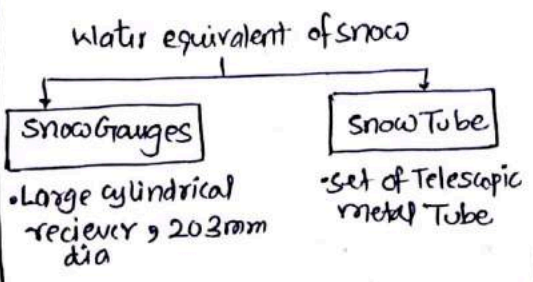 Water equivalent of snow
Snow Gauges
Snow Tube
•Large cylindrical
reciever, 203mm
dia
•set of Telescopic
metal Tube